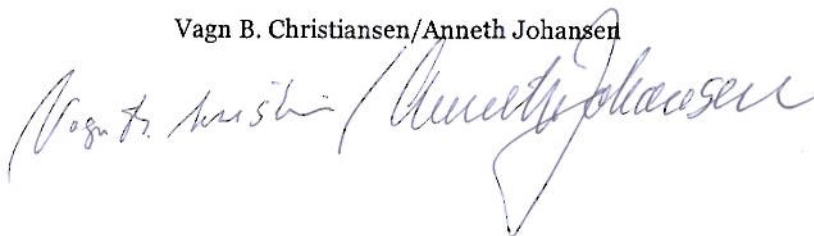 Vagn B. Christiansen/Anneth Johansen
Vagn B. Christian / Anneth Johansen